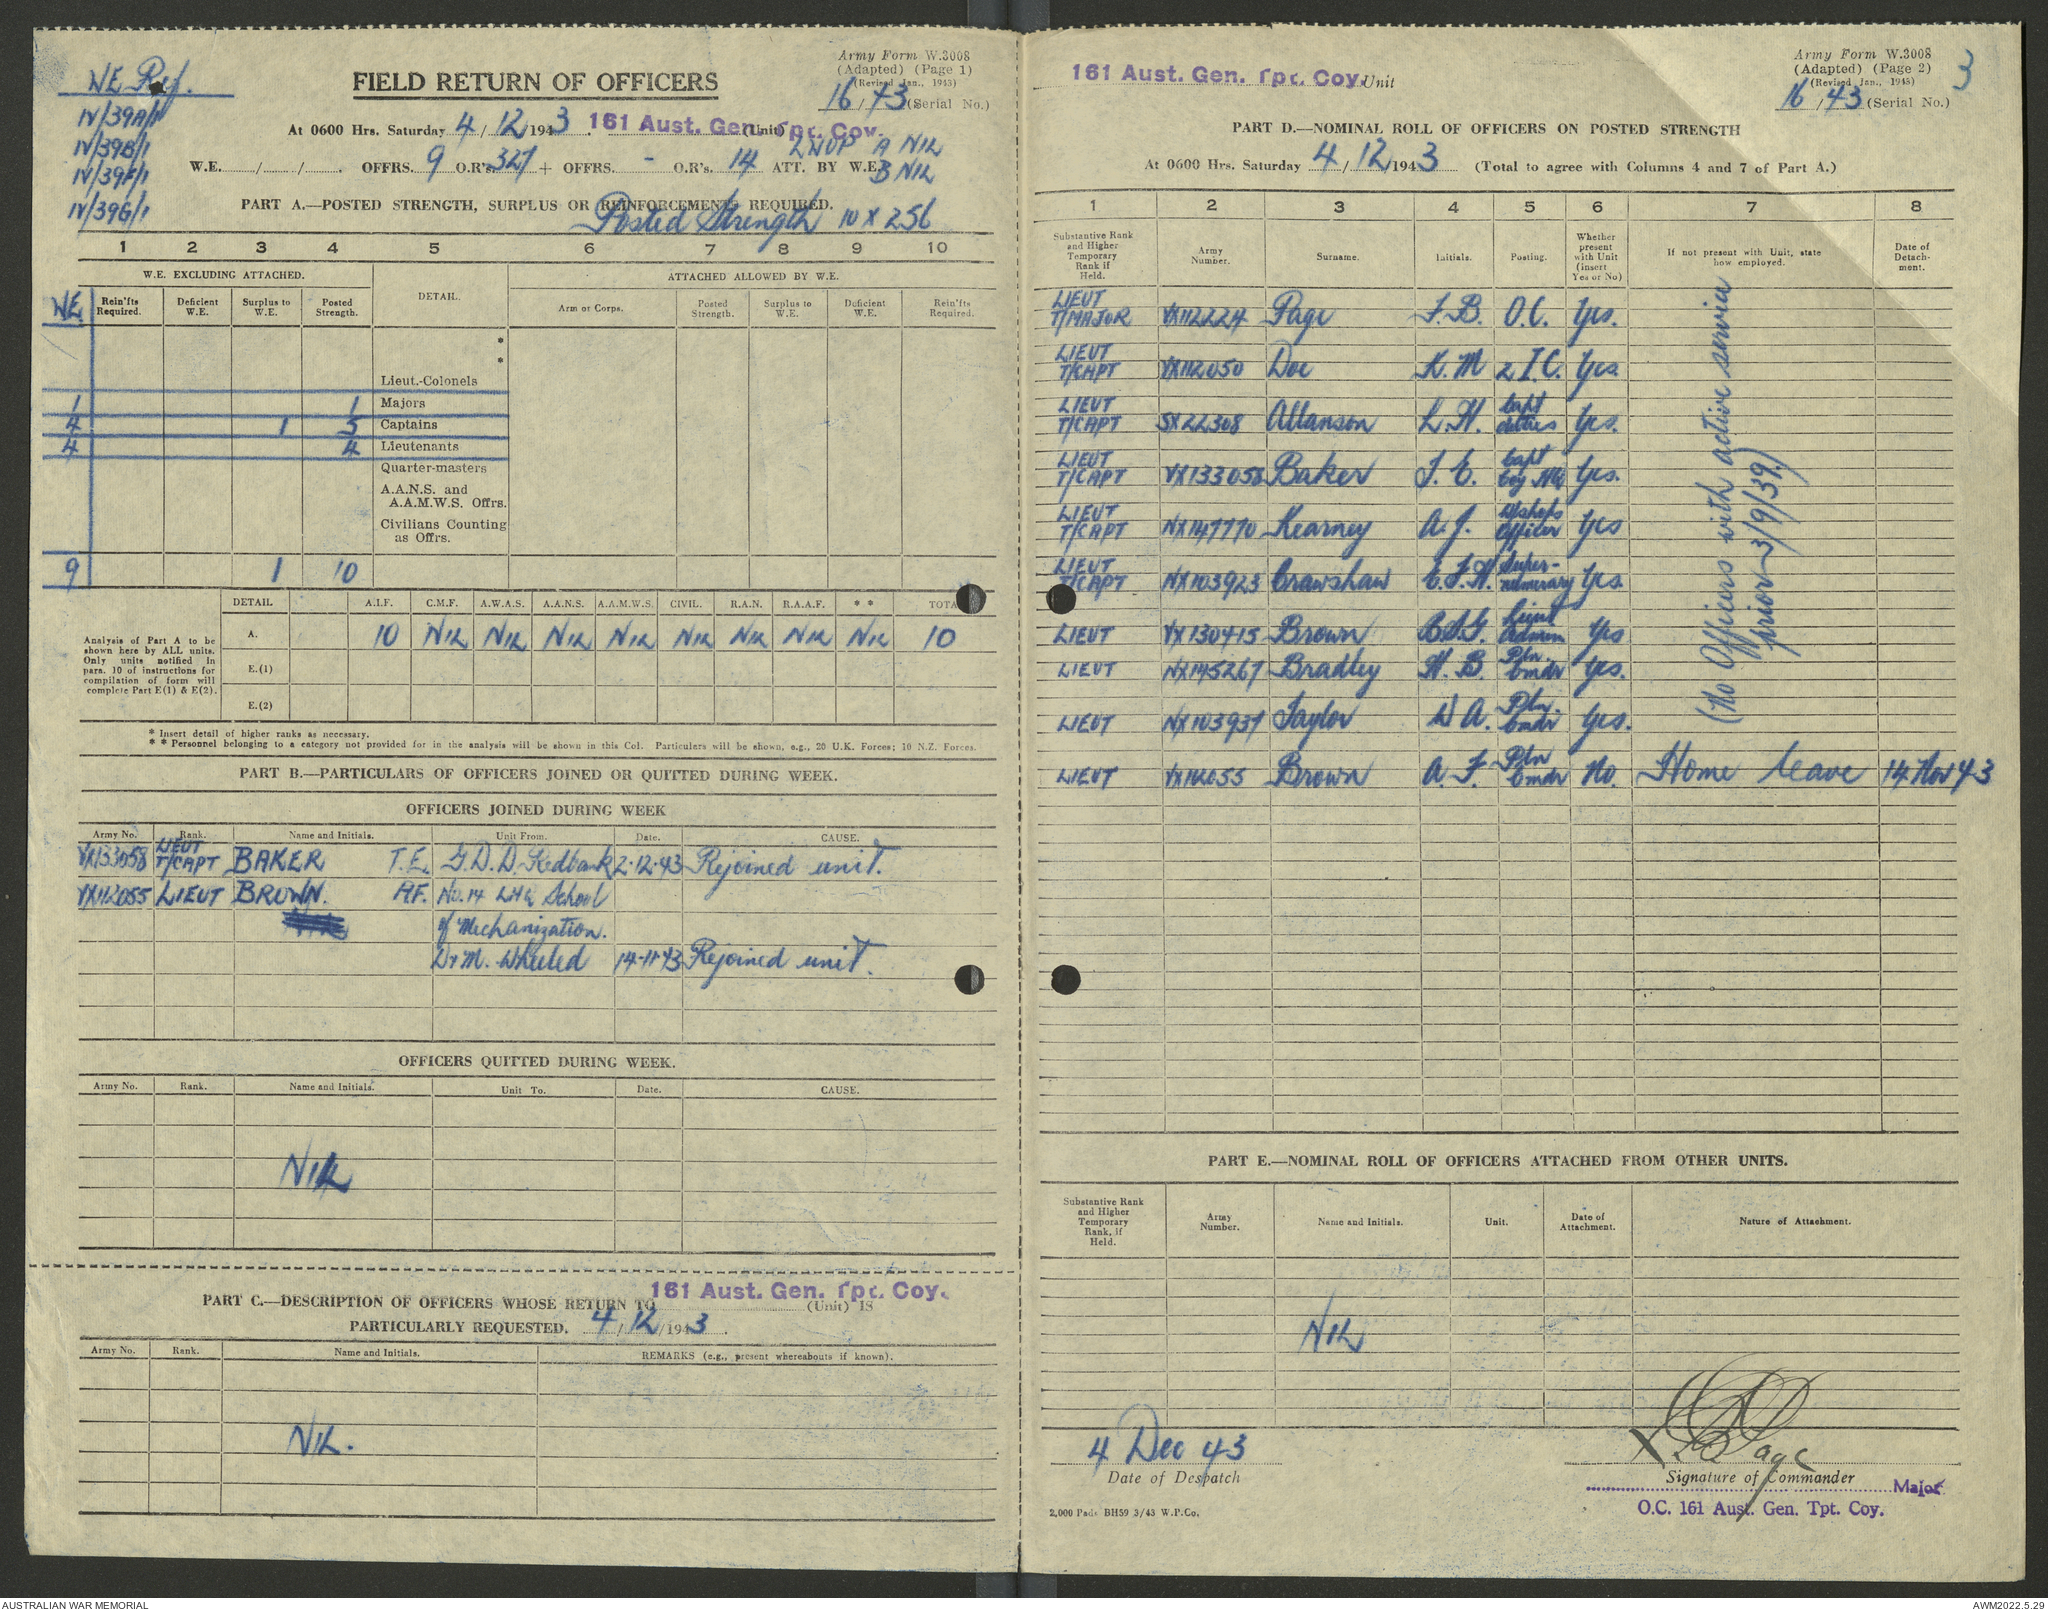 WE Ref.
IV/39A/1
IV/39B/1
IV/39F/1
IV/39G/1
Army Form W.3008
(Adapted) (Page 1)
(Revised Jan., 1943)
16/43 (Serial No.)
FIELD RETURN OF OFFICERS
At 0600 Hrs. Saturday 4/12/1943. 161 Aust. Gen. Tpt. Coy. (Unit)
A NIL
W.E. / / . OFFRS. 9 O.R's. 327 + OFFRS. - O.R's. 14 ATT. BY W.E. B NIL
PART A.—POSTED STRENGTH, SURPLUS OR REINFORCEMENTS REQUIRED.
Posted Strength 10 X 256
1 2 3 4 5 6 7 8 9 10
W.E. EXCLUDING ATTACHED. DETAIL. ATTACHED ALLOWED BY W.E.
WE Rein'fts Required. Deficient W.E. Surplus to W.E. Posted Strength. Arm or Corps. Posted Strength. Surplus to W.E. Deficient W.E. Rein'fts Required.
*
*
Lieut.-Colonels
1 1 Majors
4 1 5 Captains
4 4 Lieutenants
Quarter-masters
A.A.N.S. and
A.A.M.W.S. Offrs.
Civilians Counting
as Offrs.
9 1 10
Analysis of Part A to be shown here by ALL units. Only units notified in para. 10 of instructions for compilation of form will complete Part E(1) & E(2).
DETAIL A.I.F. C.M.F. A.W.A.S. A.A.N.S. A.A.M.W.S. CIVIL. R.A.N. R.A.A.F. * * TOTA
A. 10 NIL NIL NIL NIL NIL NIL NIL NIL 10
E.(1)
E.(2)
* Insert detail of higher ranks as necessary.
* * Personnel belonging to a category not provided for in the analysis will be shown in this Col. Particulars will be shown, e.g., 20 U.K. Forces; 10 N.Z. Forces.
PART B.—PARTICULARS OF OFFICERS JOINED OR QUITTED DURING WEEK.
OFFICERS JOINED DURING WEEK
Army No. Rank. Name and Initials. Unit From. Date. CAUSE.
VX133058 LIEUT T/CAPT BAKER T.E. G.D.D. Redbank 2·12·43 Rejoined unit.
VX112055 LIEUT BROWN. A.F. No. 14 LHQ School
of Mechanization.
D+M. Wheeled 14-11-43 Rejoined unit.
OFFICERS QUITTED DURING WEEK.
Army No. Rank. Name and Initials. Unit To. Date. CAUSE.
NIL
PART C.—DESCRIPTION OF OFFICERS WHOSE RETURN TO 161 Aust. Gen. Tpt. Coy. (Unit) IS
PARTICULARLY REQUESTED. 4/12/1943.
Army No. Rank. Name and Initials. REMARKS (e.g., present whereabouts if known).
NIL.
161 Aust. Gen. Tpt. Coy. Unit
Army Form W.3008
(Adapted) (Page 2)
(Revised Jan., 1943)
16/43 (Serial No.)
3
PART D.—NOMINAL ROLL OF OFFICERS ON POSTED STRENGTH
At 0600 Hrs. Saturday 4/12/1943 (Total to agree with Columns 4 and 7 of Part A.)
1 2 3 4 5 6 7 8
Substantive Rank and Higher Temporary Rank if Held. Army Number. Surname. Initials. Posting. Whether present with Unit (insert Yes or No) If not present with Unit, state how employed. Date of Detach-ment.
LIEUT T/MAJOR VX112224 Page F.B. O.C. Yes.
LIEUT T/CAPT VX112050 Doe K.M 2 I.C. Yes
LIEUT T/CAPT SX22308 Allanson L.H. Capt duties Yes.
LIEUT T/CAPT VX133058 Baker T.E. Capt Coy HQ Yes.
LIEUT T/CAPT NX147770 Kearney A.J. W/shops Officer Yes
LIEUT T/CAPT NX103923 Crawshaw C.F.H. Super-numerary Yes.
LIEUT VX130415 Brown B.S.G. Lieut Admin Yes
LIEUT NX145267 Bradley H.B. Pln Cmdr Yes.
LIEUT NX103937 Taylor W A. Pln Cmdr Yes.
LIEUT VX112055 Brown A.F. Pln Cmdr No. Home leave 14 Nov 43
(No Officers with active service
prior 3/9/39)
PART E.—NOMINAL ROLL OF OFFICERS ATTACHED FROM OTHER UNITS.
Substantive Rank and Higher Temporary Rank, if Held. Army Number. Name and Initials. Unit. Date of Attachment. Nature of Attachment.
NIL
4 Dec 43
Date of Despatch
X F.B. Page
Signature of Commander
Major
O.C. 161 Aust. Gen. Tpt. Coy.
2,000 Pads BH59 3/43 W.P.Co.
AUSTRALIAN WAR MEMORIAL
AWM2022.5.29